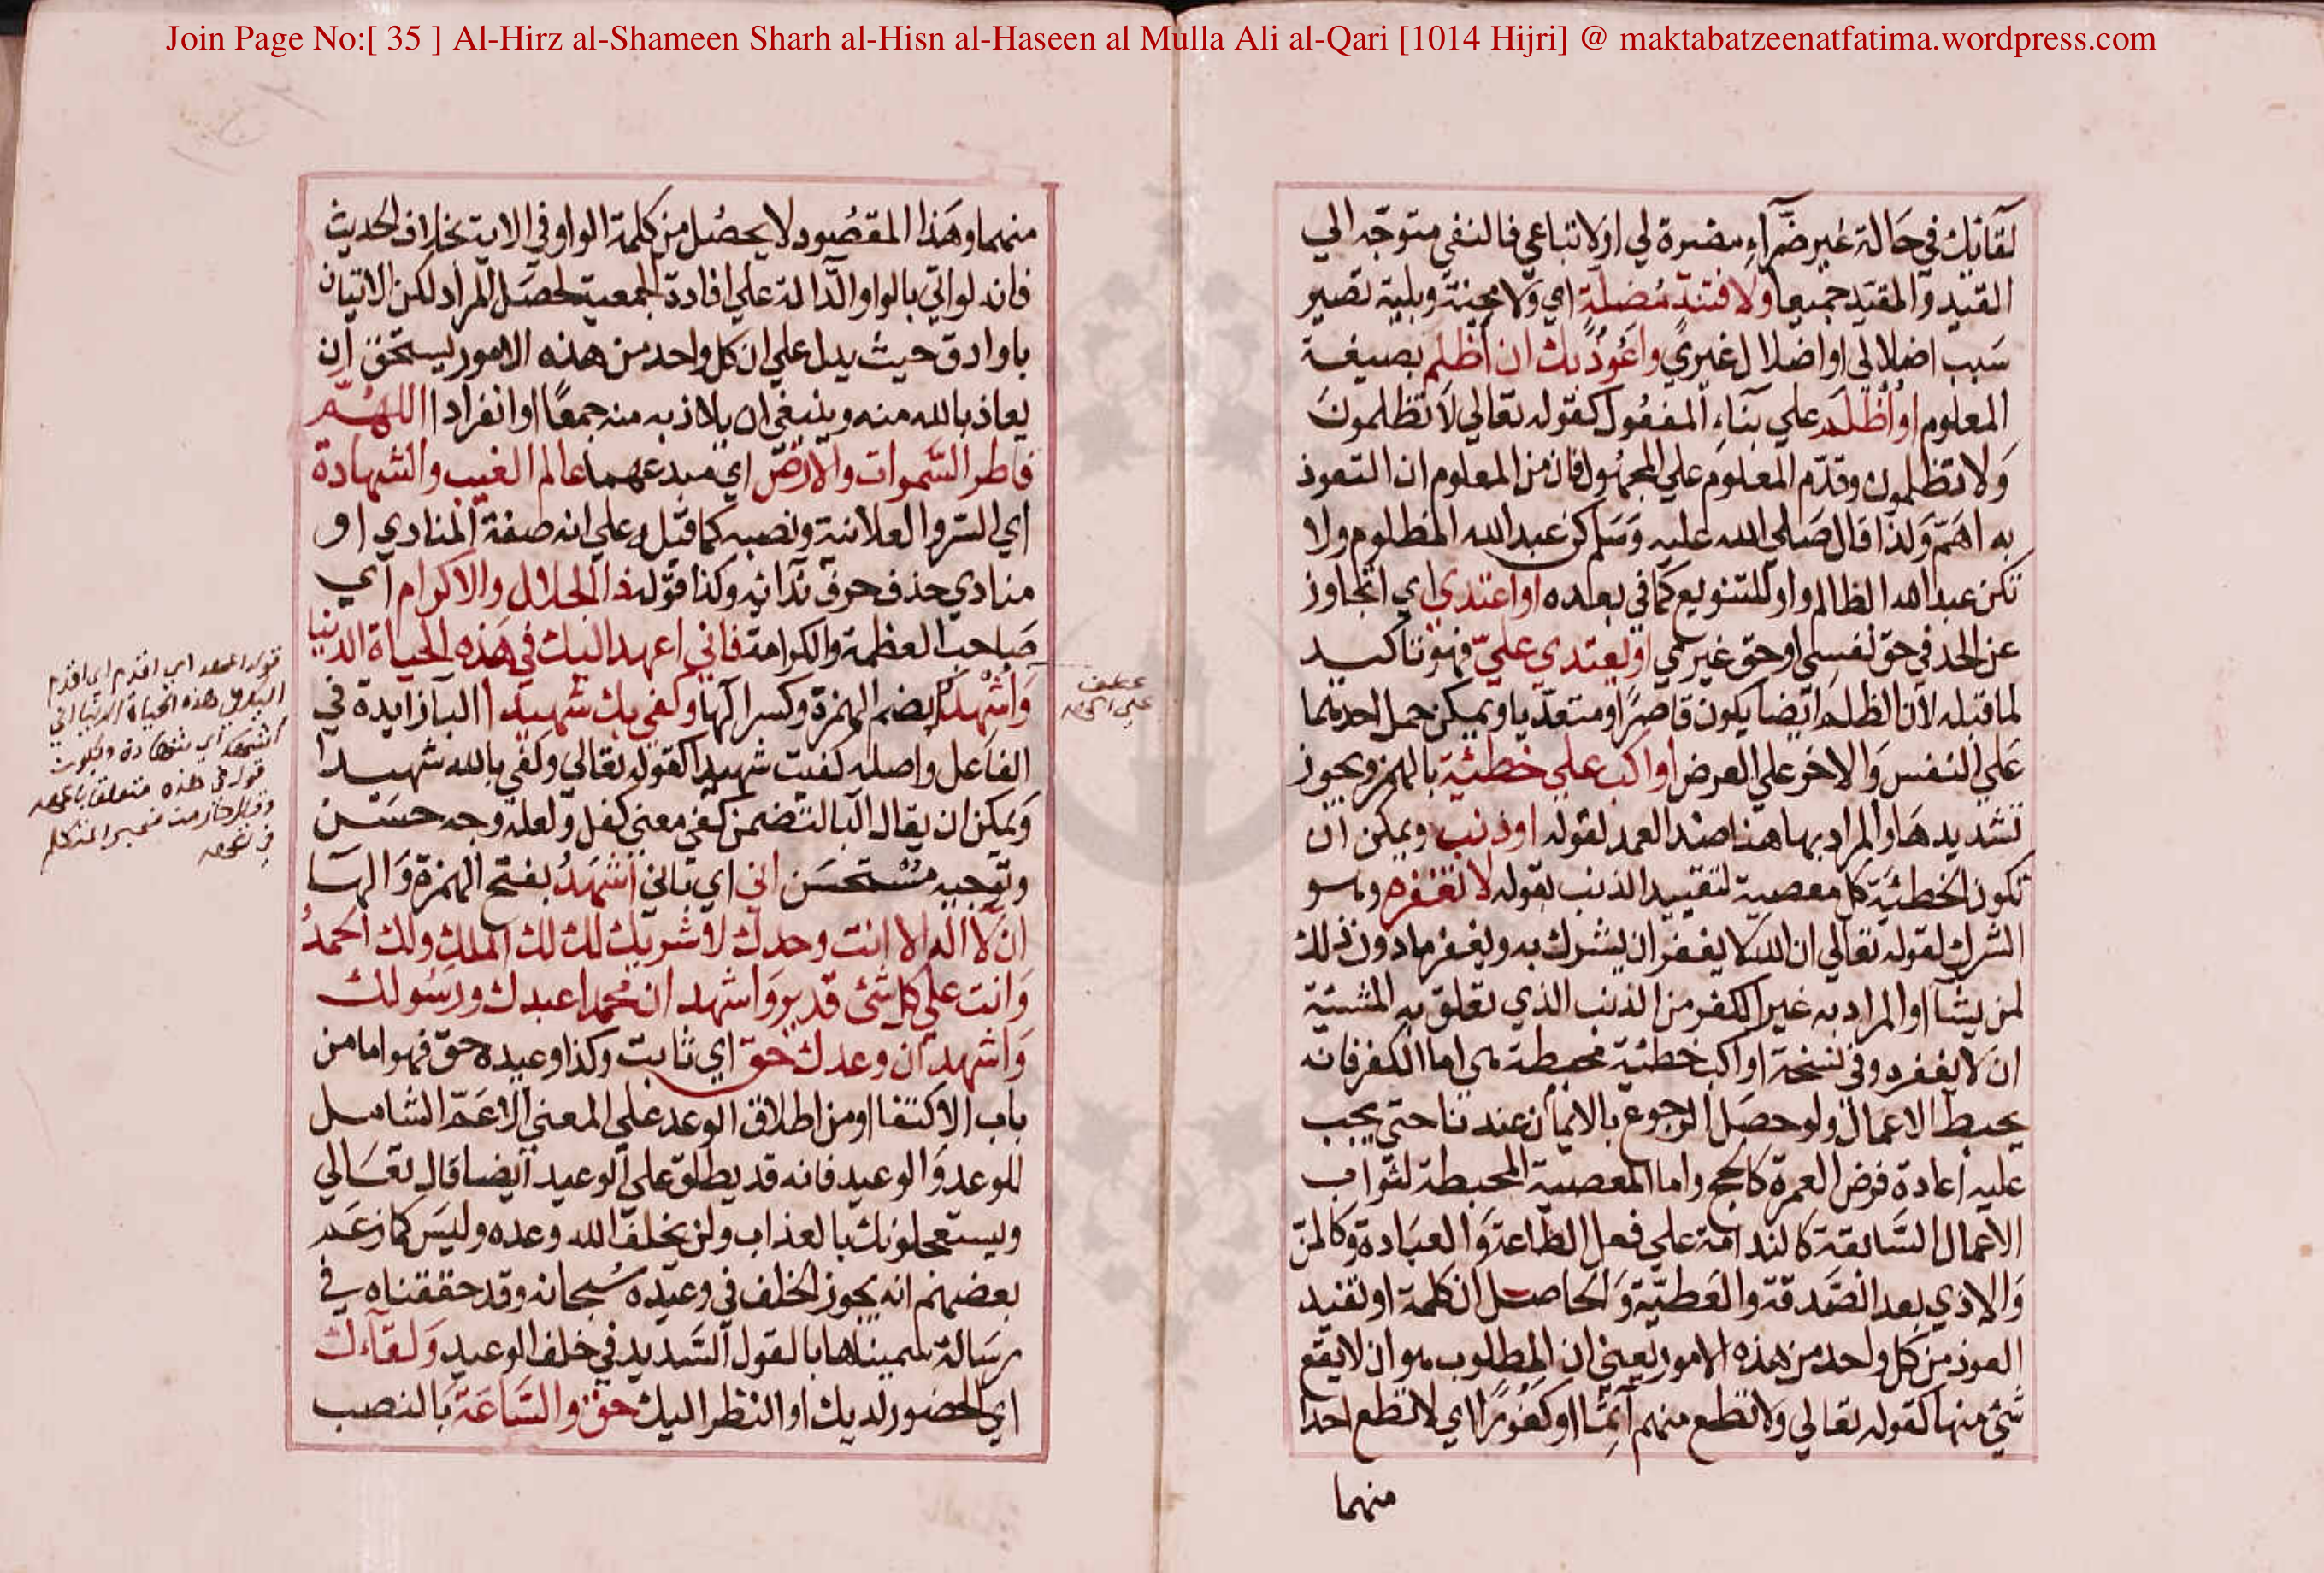 Join Page No:[ 35 ] Al-Hirz al-Shameen Sharh al-Hisn al-Haseen al Mulla Ali al-Qari [1014 Hijri] @ maktabatzeenatfatima.wordpress.com
لقائك في حالة غير ضراء مضرة لي او لاتباعي فالنفي متوجه الي
القيد والمقيد جميعا ولا فتنة مضلة اي ولا محنة وبلية تصير
سبب اضلالي او اضلال غيري واعوذ بك ان أظلم بصيغة
المعلوم او أُظلم علي بناء المفعول كقوله تعالي لا تظلمون
ولا تظلمون وقدم المعلوم علي المجهول فان من المعلوم ان التعوذ
به اهم ولذا قال صلي الله عليه وسلم كن عبد الله المظلوم ولا
تكن عبد الله الظالم واو للتنويع كما في بعده او اعتدي اي اتجاوز
عن الحد في حق نفسي او حق غيري او يعتدي علي فهو تاكيد
لما قبله لان الظلم ايضا يكون قاصرا ومتعديا ويمكن حمل احدهما
علي النفس والاخر علي العرض او اكسب علي خطئية بالهمز ويجوز
تشديدها والمراد بها هنا ضد العمد لقوله او ذنب ويمكن ان
تكون الخطئية كل معصية لتقييد الذنب بقوله لا تغفره وهو
الشرك لقوله تعالي ان الله لا يغفر ان يشرك به ويغفر ما دون ذلك
لمن يشا او المراد به غير الكفر من الذنب الذي تعلق به المشيئة
ان لا يغفره وفي نسخة او اكسب خطئية محبطة هي اما الكفر فانه
يحبط الاعمال ولو حصل الرجوع بالايمان عندنا حتي يجب
عليه اعادة فرض العمرة كالحج واما المعصية المحبطة لثواب
الاعمال السابقة كالندامة علي فعل الطاعة والعبادة وكالمن
والاذي بعد الصدقة والعطية والحاصل ان كلمة او تفيد
العوذ من كل واحد من هذه الامور يعني ان المطلوب هو ان لا يقع
شئ منها كقوله تعالي ولا تطع منهم آثما او كفورا اي لا تطع احدا
منهما
منهما وهذا المقصود لا يحصل من كلمة الواو في الاية بخلاف الحديث
فانه لو اتي بالواو الدالة علي افادة الجمعية لحصل المراد لكن الاتيان
باو ادق حيث يدل علي ان كل واحد من هذه الامور يستحق ان
يعاذ بالله منه وينبغي ان يلاذ به منه جمعا او انفرادا اللهم
فاطر السموات والارض اي مبدعهما عالم الغيب والشهادة
اي السر والعلانية ونصبه كما قبله علي انه صفة المنادي او
منادي حذف حرف ندائه وكذا قوله ذا الجلال والاكرام اي
صاحب العظمة والكرامة فاني اعهد اليك في هذه الحياة الدنيا
واشهدك بضم الهمزة وكسر الها وكفي بك شهيدا البا زايدة في
الفاعل واصله كفيت شهيدا كقوله تعالي وكفي بالله شهيدا
ويمكن ان يقال البا لتضمن كفي معني كفل ولعله وجه حسن
وتوجيه مستحسن اني اي باني اشهد بفتح الهمزة والها
ان لا اله الا انت وحدك لا شريك لك لك الملك ولك الحمد
وانت علي كل شئ قدير واشهد ان محمدا عبدك ورسولك
واشهد ان وعدك حق اي ثابت وكذا وعيده حق فهو اما من
باب الاكتفا او من اطلاق الوعد علي المعني الاعم الشامل
للوعد والوعيد فانه قد يطلق علي الوعيد ايضا قال تعالي
ويستعجلونك بالعذاب ولن يخلف الله وعده وليس كما زعم
بعضهم انه يجوز الخلف في وعيده سبحانه وقد حققناه في
رسالة سميناها بالقول السديد في خلف الوعيد ولقاءك
اي الحضور لديك او النظر اليك حق والساعة بالنصب
عطف
قوله اعهد اي اقدم اي اقدم
اليك في هذه الحياة الدنيا اني